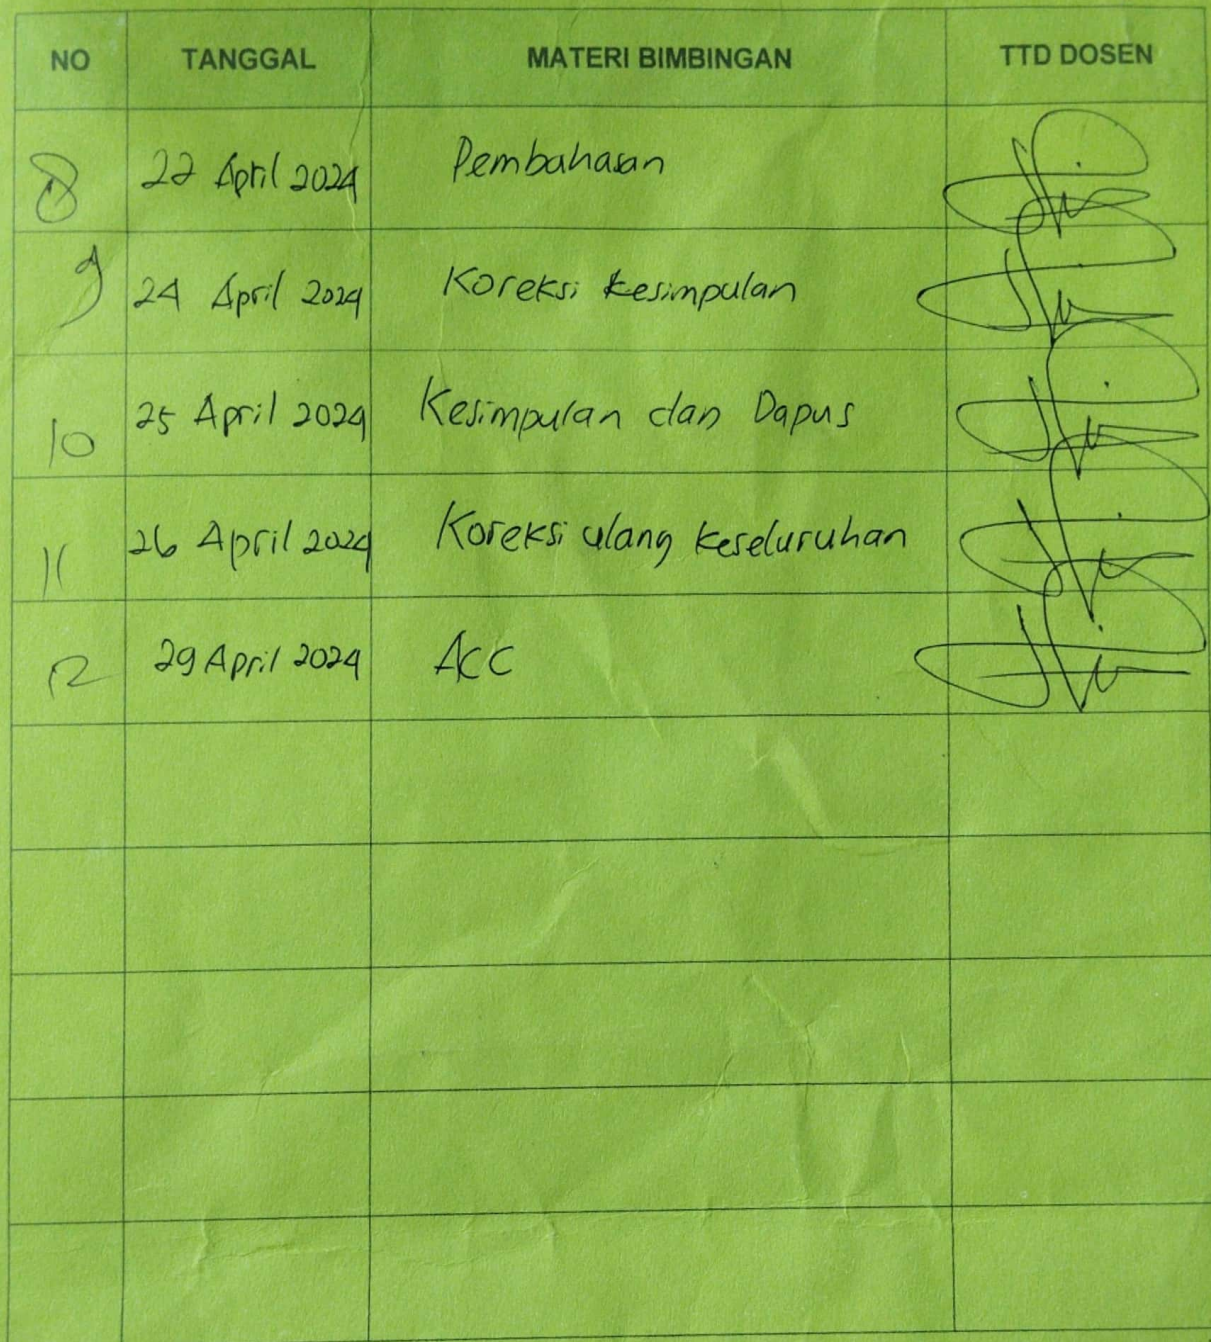 NO TANGGAL MATERI BIMBINGAN TTD DOSEN
8 22 April 2024 Pembahasan
9 24 April 2024 Koreksi kesimpulan
10 25 April 2024 Kesimpulan dan Dapus
11 26 April 2024 Koreksi ulang keseluruhan
12 29 April 2024 ACC